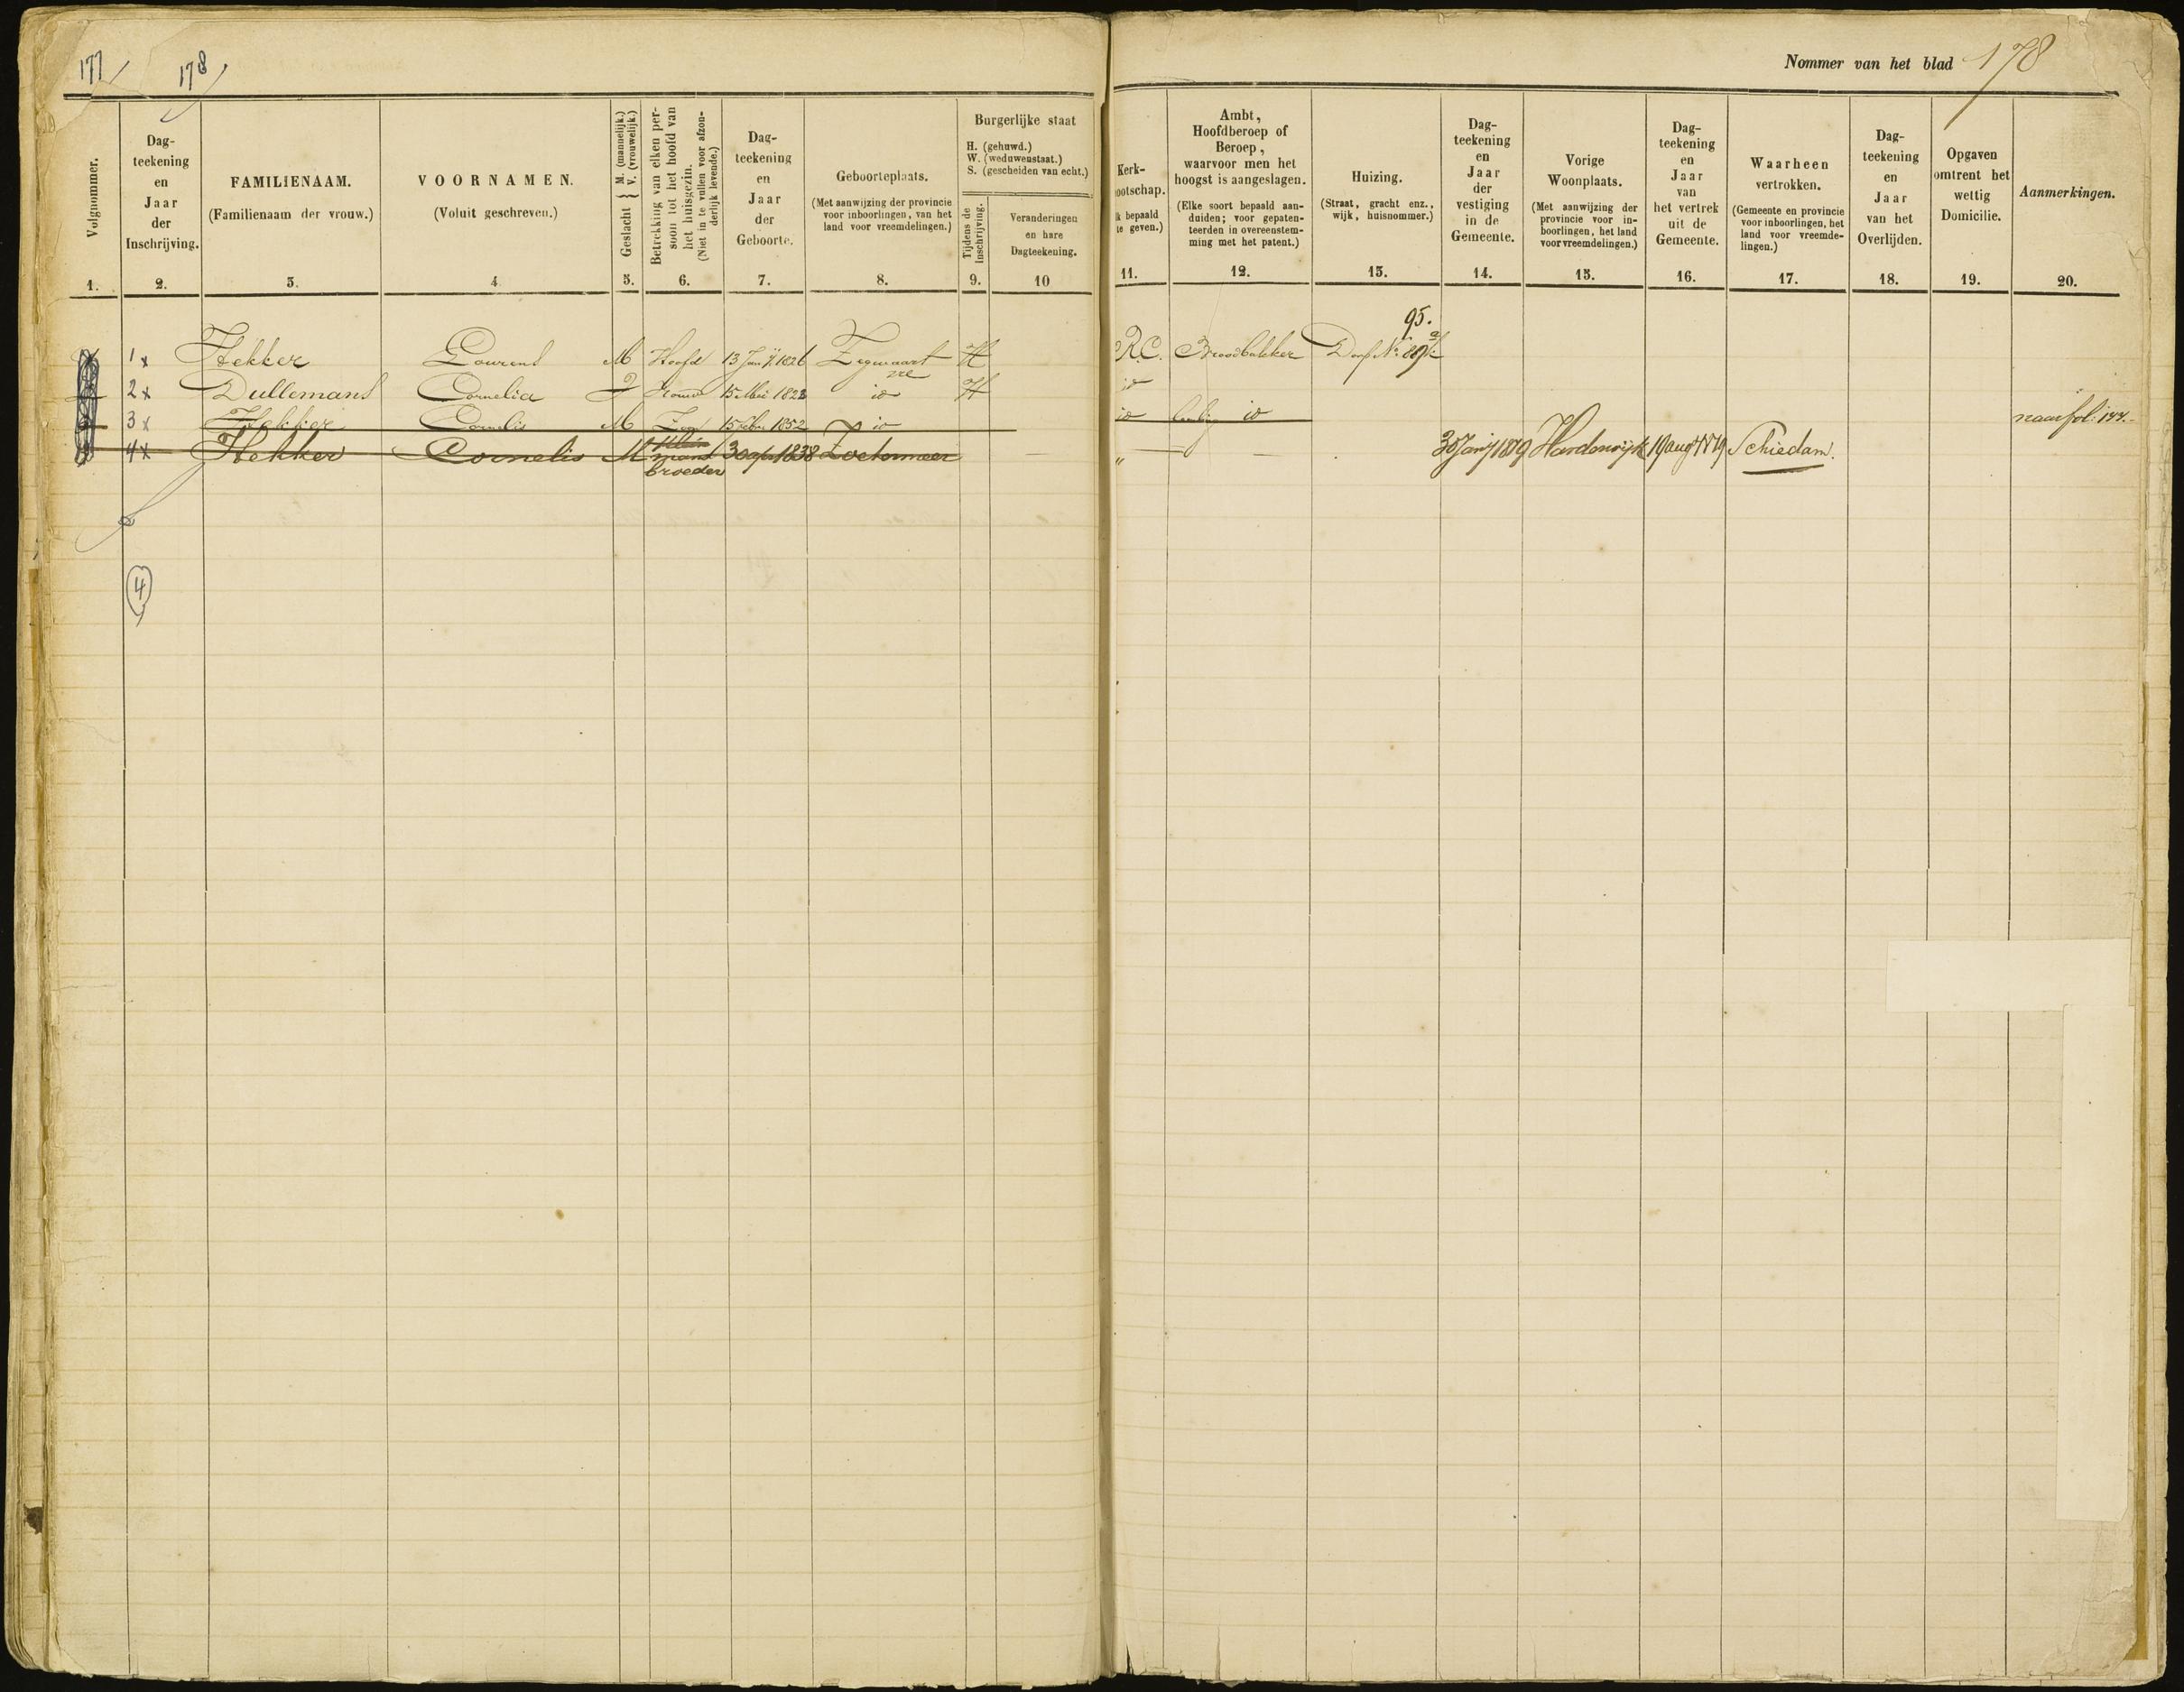 177 178
Nommer van het blad 178
Volgnommer.
1.
Dag-
teekening
en
Jaar
der
Inschrijving.
2.
FAMILIENAAM.
(Familienaam der vrouw.)
3.
VOORNAMEN.
(Voluit geschreven.)
4
Geslacht } M. (mannelijk.) V. (vrouwelijk.)
5.
Betrekking van elken per-
soon tot het hoofd van
het huisgezin.
(Niet in te vullen voor afzon-
derlijk levende.)
6.
Dag-
teekening
en
Jaar
der
Geboorte.
7.
Geboorteplaats.
(Met aanwijzing der provincie
voor inboorlingen, van het
land voor vreemdelingen.)
8.
Burgerlijke staat
H. (gehuwd.)
W. (weduwenstaat.)
S. (gescheiden van echt.)
Tijdens de
inschrijving.
9.
Veranderingen
en hare
Dagteekening.
10
Kerk-
ootschap.
k bepaald
te geven.)
11.
Ambt,
Hoofdberoep of
Beroep,
waarvoor men het
hoogst is aangeslagen.
(Elke soort bepaald aan-
duiden; voor gepaten-
teerden in overeenstem-
ming met het patent.)
12.
Huizing.
(Straat, gracht enz.,
wijk, huisnommer.)
13.
Dag-
teekening
en
Jaar
der
vestiging
in de
Gemeente.
14.
Vorige
Woonplaats.
(Met aanwijzing der
provincie voor in-
boorlingen, het land
voor vreemdelingen.)
15.
Dag-
teekening
en
Jaar
van
het vertrek
uit de
Gemeente.
16.
Waarheen
vertrokken.
(Gemeente en provincie
voor inboorlingen, het
land voor vreemde-
lingen.)
17.
Dag-
teekening
en
Jaar
van het
Overlijden.
18.
Opgaven
omtrent het
wettig
Domicilie.
19.
Aanmerkingen.
20.
95.
1x Hekker Lourens M Hoofd 13 Junij 1826 Zegwaart H R.C. Broodbakker Dorp No. 89
2x Dullemans Cornelia V Vrouw 15 Mei 1822 id H id
3x Hekker Cornelis M Zoon 15 1852 id id id naar fol: 177.
4x Hekker Cornelis M broeder 30 apr 1838 Zoetermeer " 30 Junij 1879 Harderwijk 19 aug 1879 Schiedam.
4